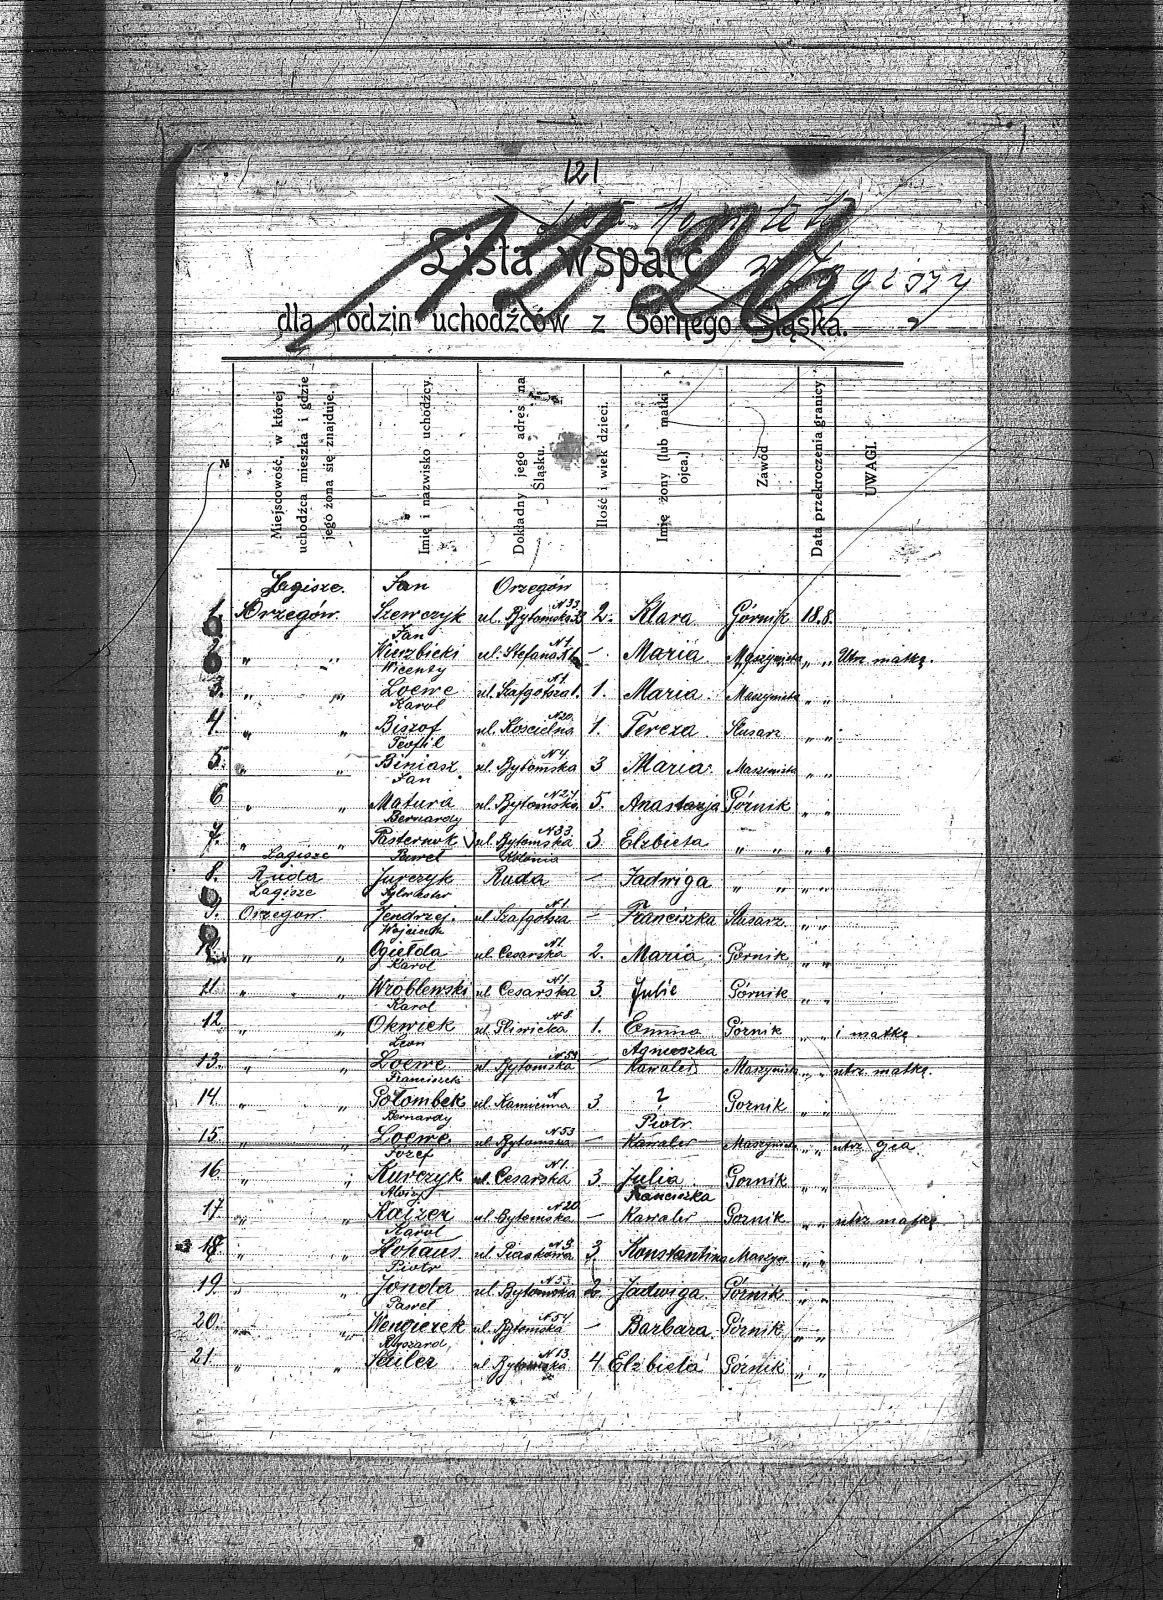 121
Lista wsparć
dla rodzin uchodźców z Górnego Śląska.
w Łagiszy
№
Miejscowość, w której uchodźca mieszka i gdzie jego żona się znajduje.
Imię i nazwisko uchodźcy.
Dokładny jego adres na Śląsku.
Ilość i wiek dzieci.
Imię żony (lub matki ojca.)
Zawód
Data przekroczenia granicy
UWAGI.
Łagisze. Jan Orzegów
1. Orzegów. Szewczyk ul. Bytomska N 33 2. Klara Górnik 18.8.
Jan
2. " " Wierzbicki ul. Stefana N 1 – Maria Maszynista " " Utrz matkę.
Wicenty
3. " " Loewe ul. Szafgotsza N 1. 1. Maria Maszynista " "
Karol
4. " " Biszof ul. Kościelna N 20. 1. Tereza Ślusarz " "
Teofil
5. " " Biniasz ul. Bytomska N 4 3 Maria Maszinista " "
Jan
6 " " Matura ul. Bytomska N 21 5. Anastazja Górnik " "
Bernardy
7. " " Pasternok ul. Bytomska N 33. 3. Elzbieta " " " "
Łagisze Paweł Kolonia
8. Ruda Jurczyk Ruda – Jadwiga " " " "
Łagisze Sylwester
9. Orzegow Jendrzej. ul Szafgotsza N 1 – Franciszka Ślusarz " "
Wojciech
10. " " Ogiełda ul. Cesarska N 1. 2. Maria Górnik " "
Karol
11. " " Wróblewski ul Cesarska N 1. 3. Julie Górnik " "
Karol
12. " " Okwiek ul. Gliwicka N 8. 1. Emma Górnik " " i matkę.
Leon Agnieszka
13. " " Loewe ul. Bytomska N 53 – Kawaler Maszynista " " utrz. matkę.
Franciszek
14. " " Gołombek ul. Kamienna N 3 ? Gornik " "
Bernardy Piotr
15. " " Loewe ul. Bytomska N 53 – Kawaler Maszynista " " utrz ojca.
Józef
16 " " Kurczyk ul. Cesarska N 1. 3. Julia Gornik " "
Alojzy Franciszka
17 " " Kajzer ul. Bytomska N 20 – Kawaler Gornik " " utrz matkę
Karol
18 " " Hohaus ul. Piaskowa N 3 3 Konstantina Maszyn " "
Piotr
19. " " Jonda ul. Bytomska N 53 2. Jadwiga Górnik " "
Paweł
20. " " Wengierek ul. Bytomska N 54 – Barbara Górnik " "
Ryszard,
21. " " Seiler ul. Bytomska N 13. 4 Elzbieta Górnik " "